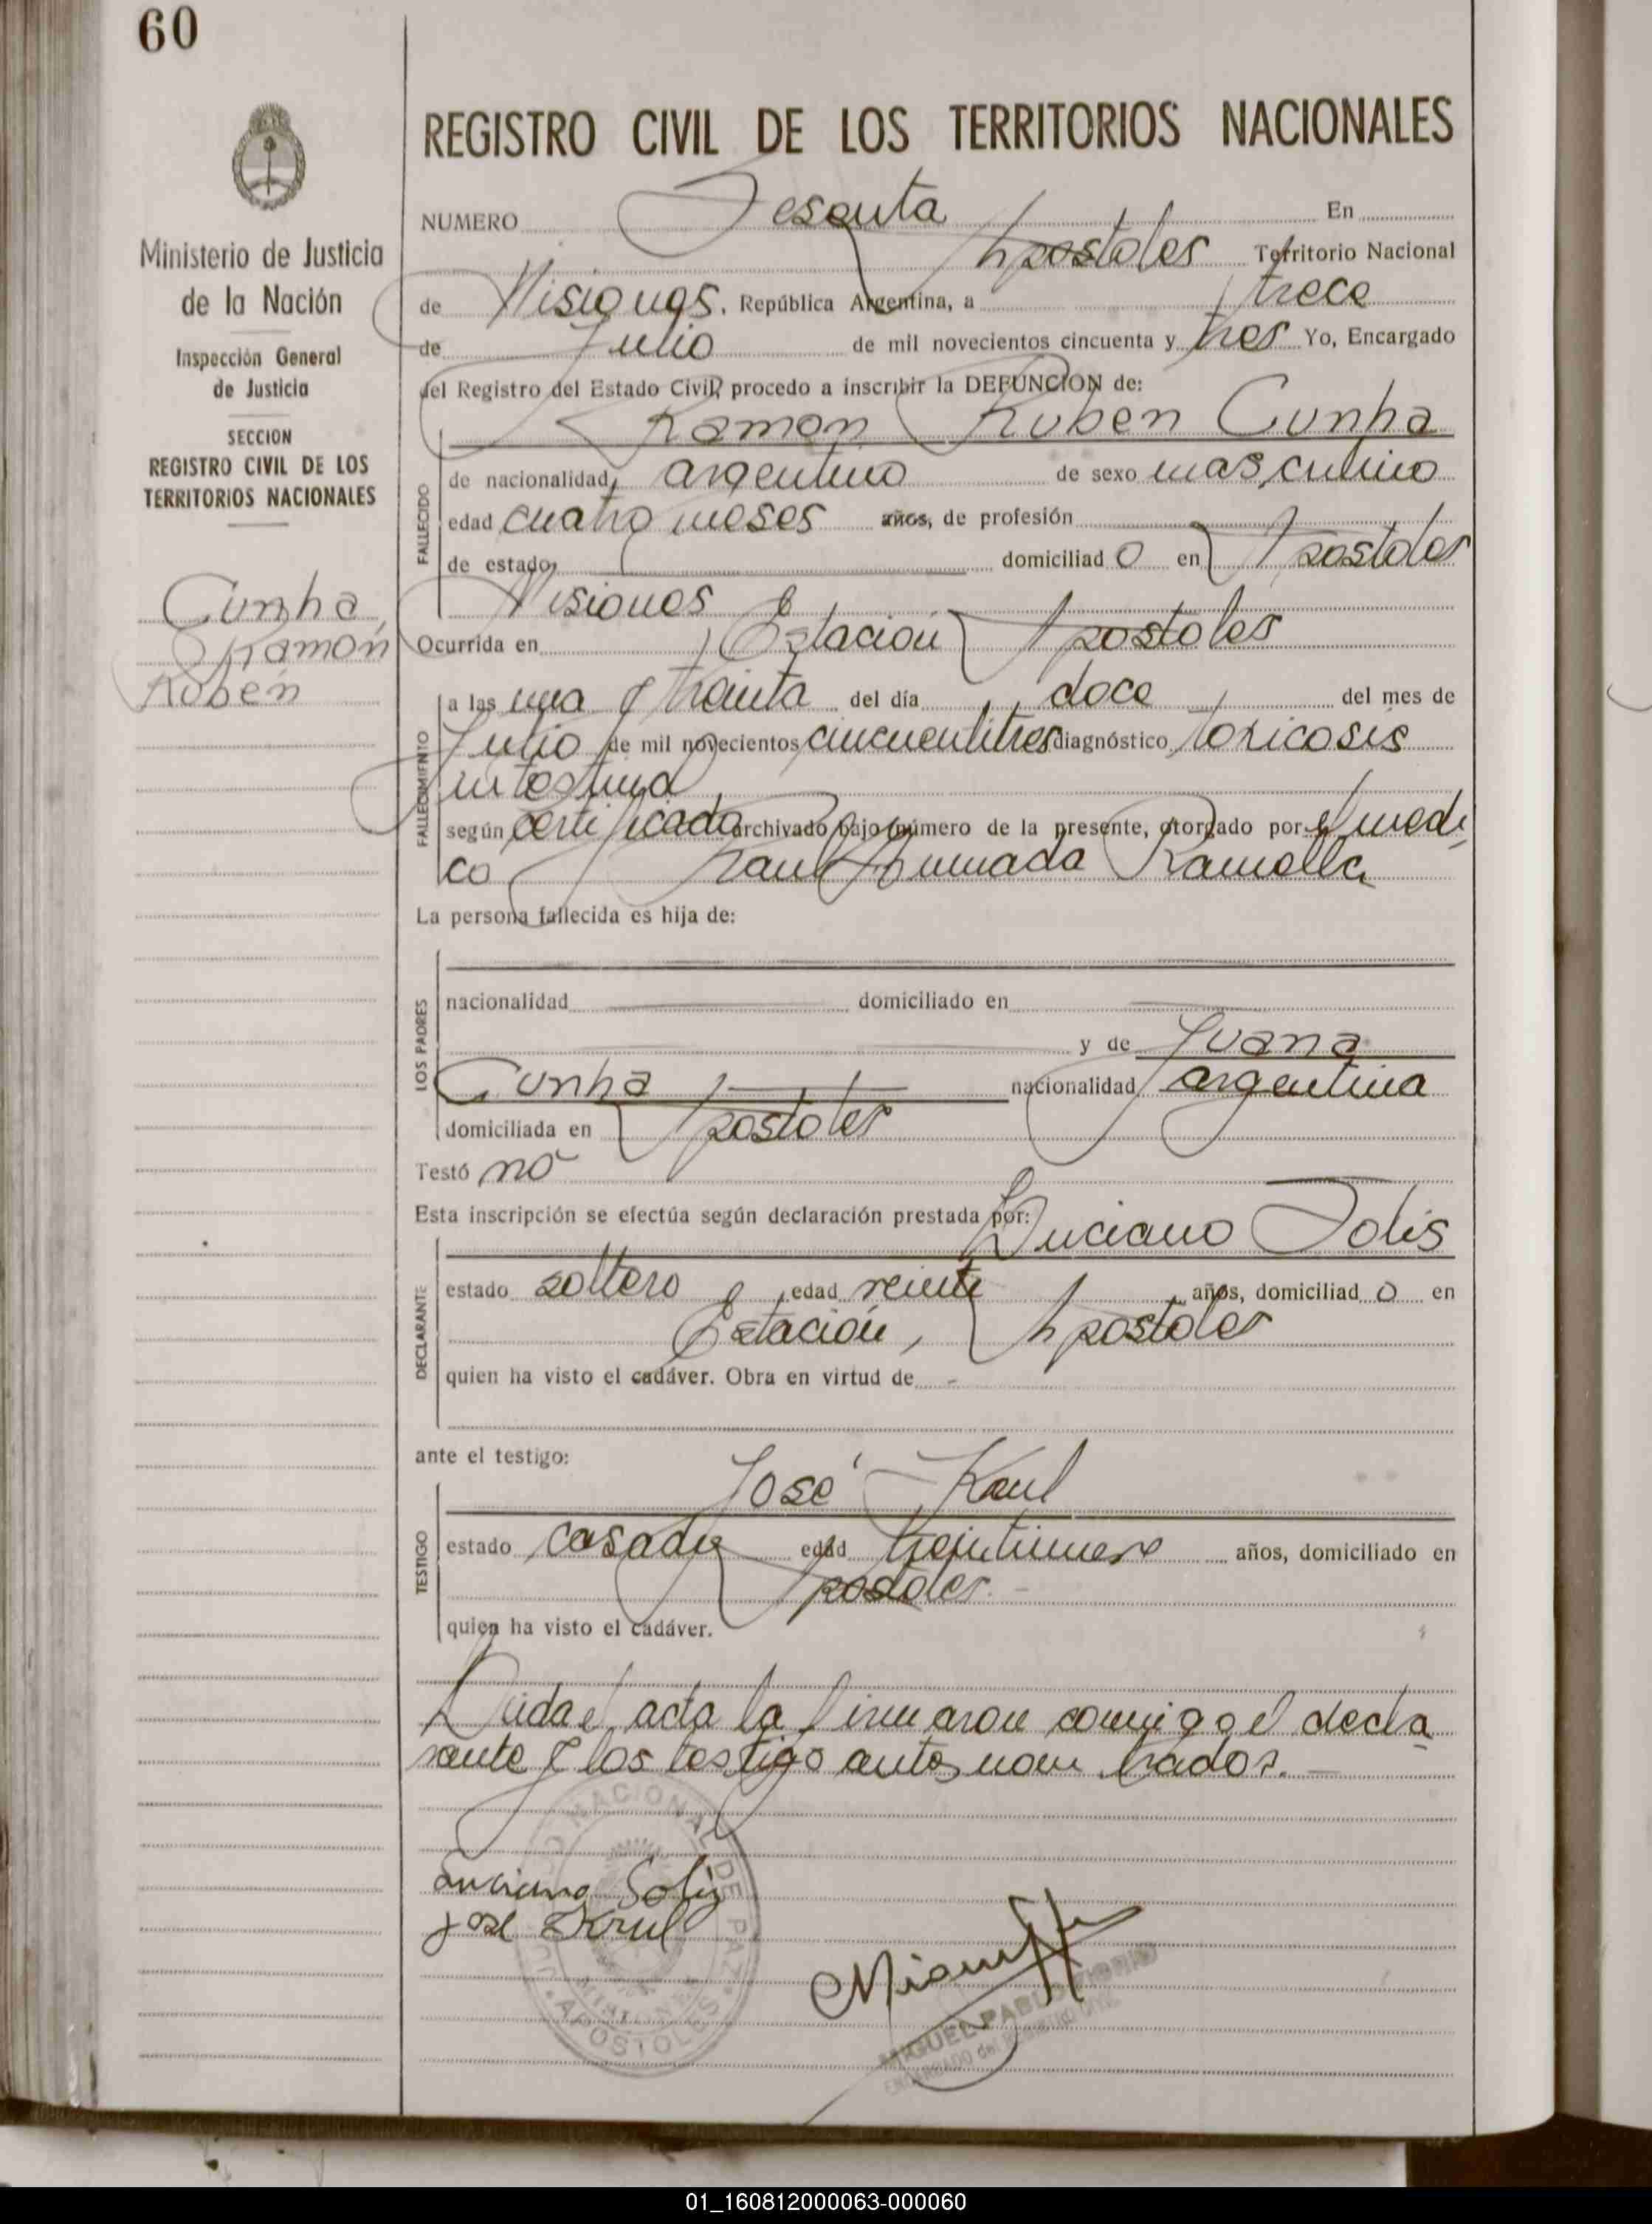 60
REGISTRO CIVIL DE LOS TERRITORIOS NACIONALES
Ministerio de Justicia
de la Nación
Inspección General
de Justicia
SECCION
REGISTRO CIVIL DE LOS
TERRITORIOS NACIONALES
Cunha,
Ramón
Rubén
NUMERO Sesenta En
Apostoles Territorio Nacional
de Misiones, República Argentina, a trece
de Julio de mil novecientos cincuenta y tres Yo, Encargado
del Registro del Estado Civil, procedo a inscribir la DEFUNCION de:
Ramon Ruben Cunha
FALLECIDO
de nacionalidad argentino de sexo masculino
edad cuatro meses años, de profesión
de estado domiciliad o en Apostoles
Misiones
Ocurrida en Estación Apostoles
FALLECIMIENTO
a las una y treinta del día doce del mes de
Julio de mil novecientos cincuentitres diagnóstico toxicosis
intestinal
según certificado archivado bajo número de la presente, otorgado por el medi
co Raul Ahumada Ramella
La persona fallecida es hija de:
LOS PADRES
nacionalidad domiciliado en
y de Juana
Cunha nacionalidad argentina
domiciliada en Apostoles
Testó no
Esta inscripción se efectúa según declaración prestada por: Luciano Solis
DECLARANTE
estado soltero edad veinte años, domiciliad o en
Estación, Apostoles
quien ha visto el cadáver. Obra en virtud de -
ante el testigo:
José Krul
TESTIGO
estado casado edad años, domiciliado en
Apostoles.-
quien ha visto el cadáver.
Leida el acta la firmaron conmigo el decla
rante y los testigo antes nombrados.-
Luciano Solis
José Krul
NACIONAL DE PAZ
MISIONES
APOSTOLES
MIGUEL PABLO
ENCARGADO del
01_160812000063-000060